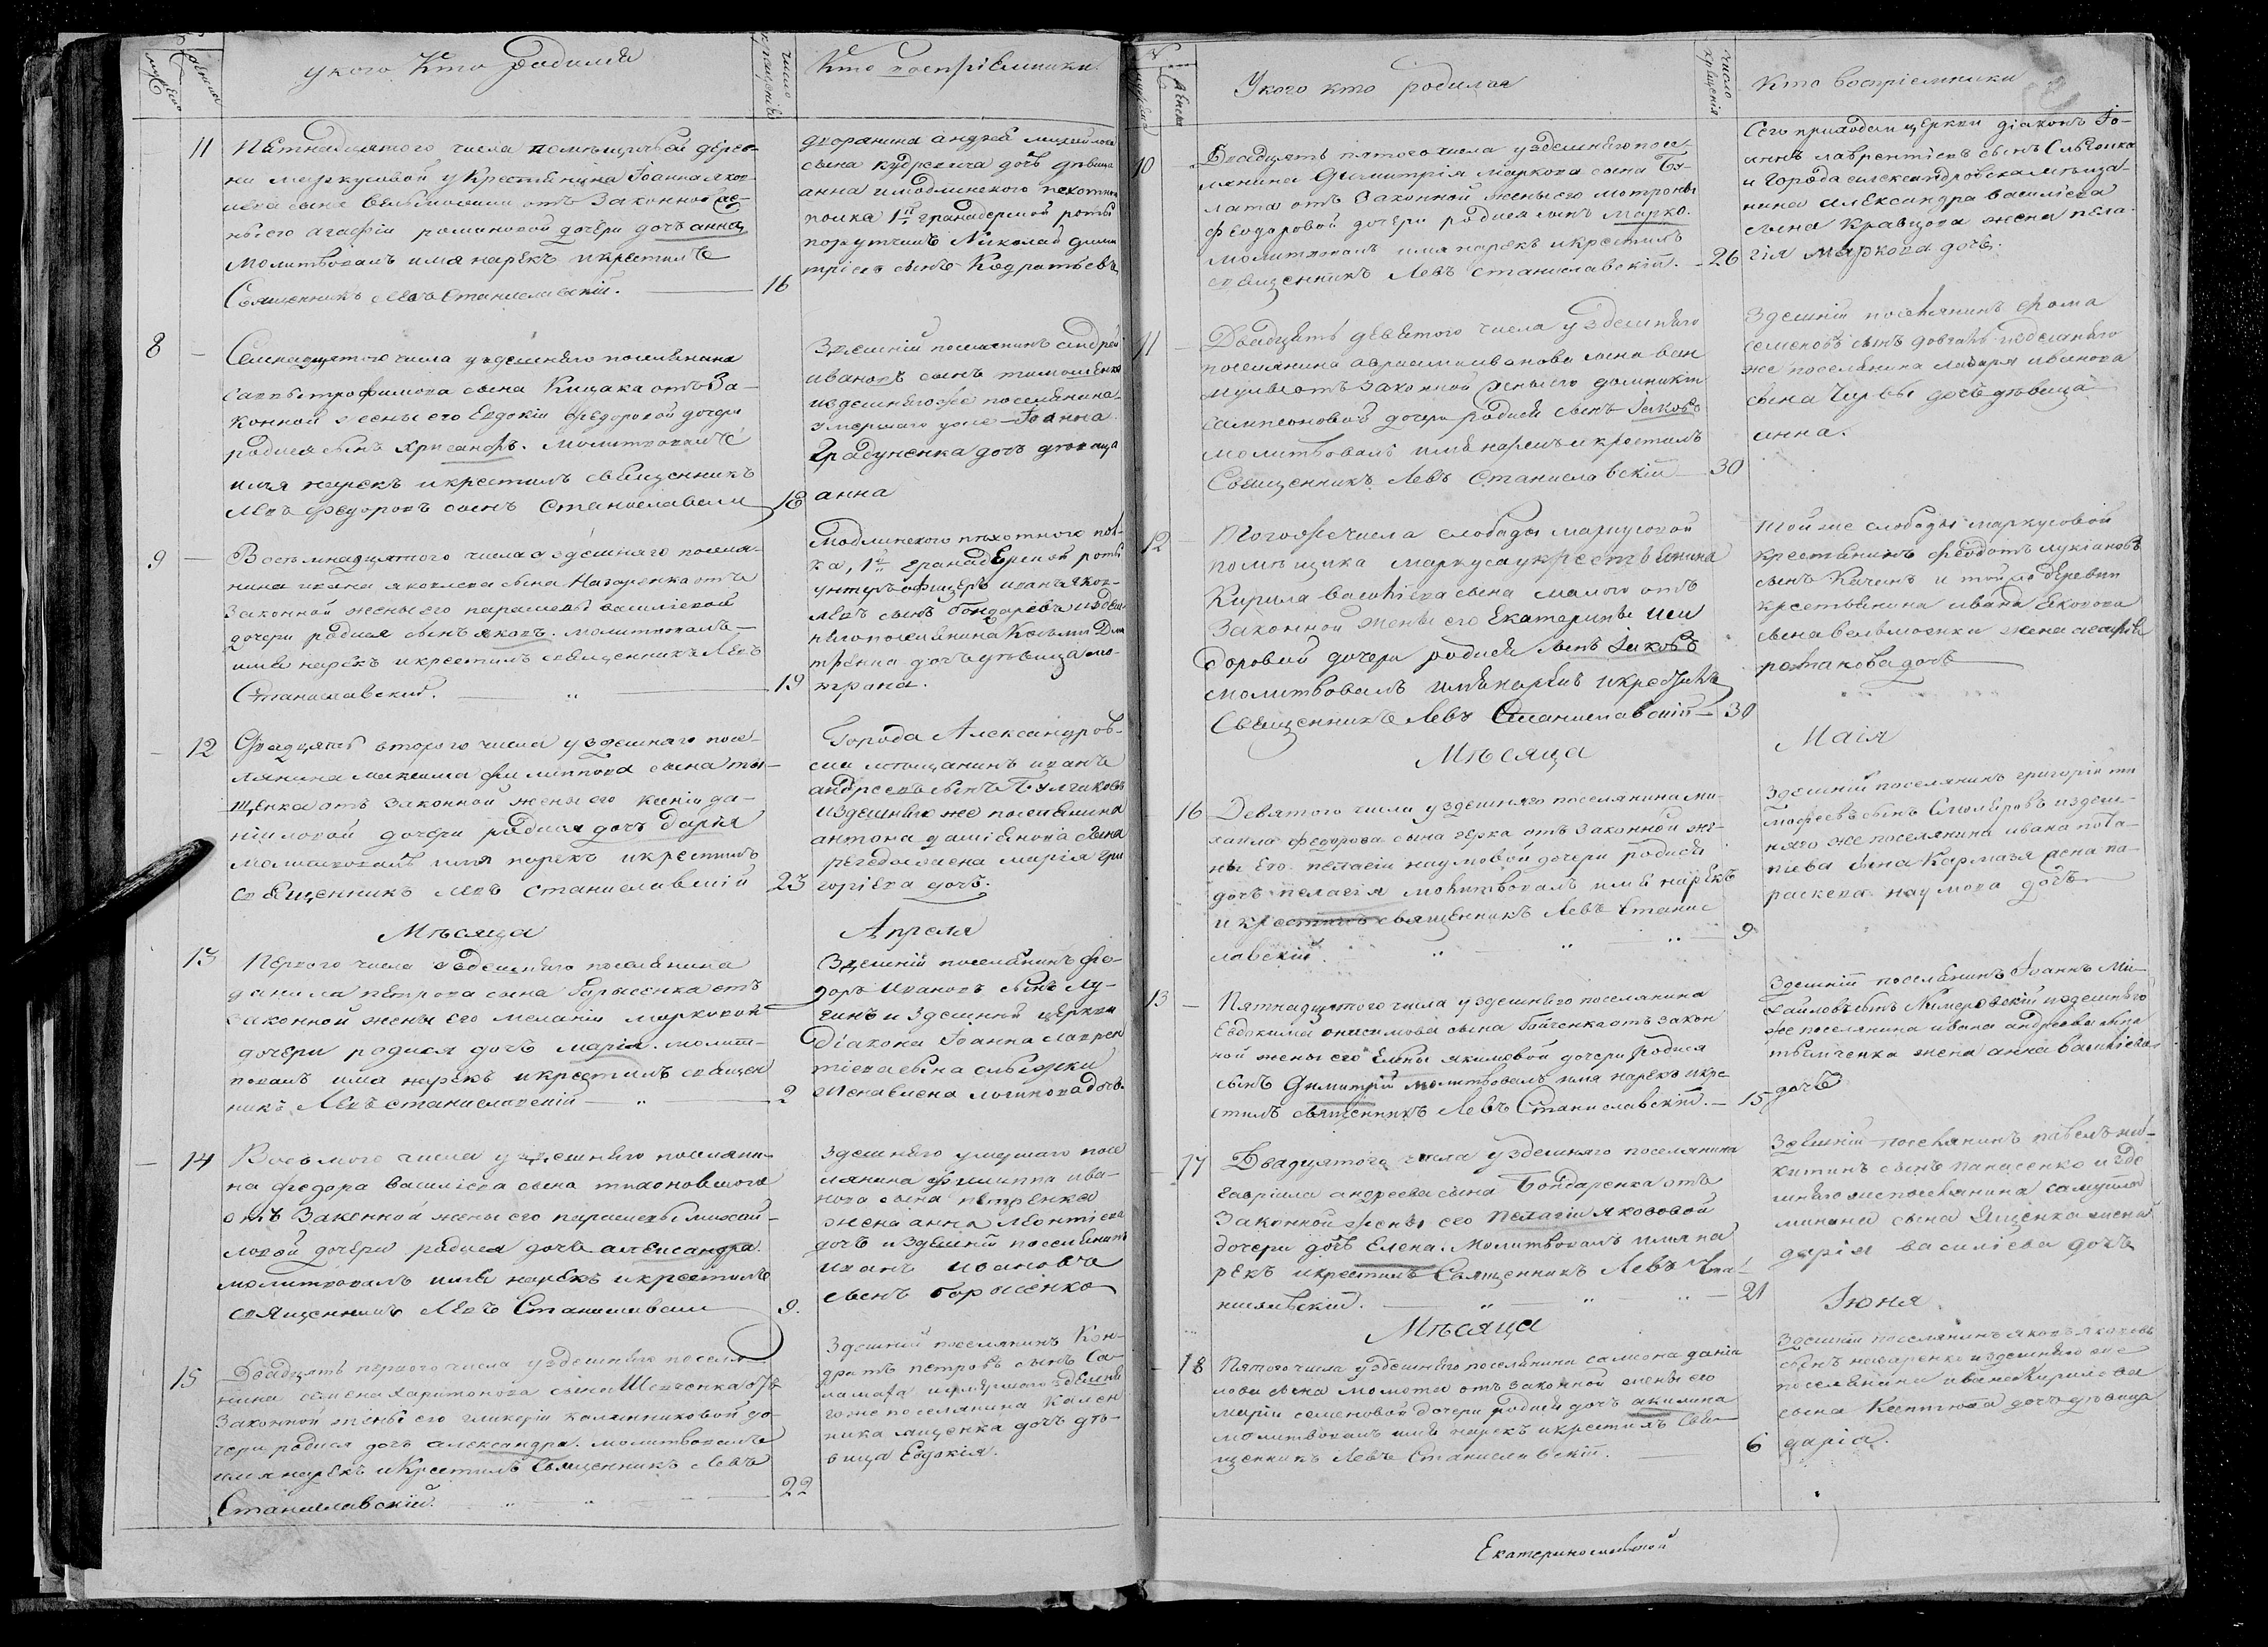 у кого Кто родился
число крещенія
Кто воспріемники
11
Пятнадцятого числа помѣщичьей дерев-
ни маркусовой у Крестянина Іоанна яков-
лева сына вельможки отъ Законной же-
ны его агафіи романовой дочери дочъ анна
молитвовалъ имя нарекъ и крестилъ
Священникъ Левъ Станиславскій.
16
дворанина андрей михайлова
сына кудревича дочь дѣвица
анна и модлинского пехотнаго
полка 1й гранадерской роты
порутчикъ Николай дими
тріевъ сынъ Кодратьевъ
8
Семнадцятого числа у здешняго поселянина
саввы трофимова сына Кицака отъ За-
конной жены его Евдокіи федоровой дочери
родися сынъ Хрисанфъ. молитвовалъ
имя нарекъ и крестилъ священникъ
Левъ федоровъ сынъ Станиславскій
18
Здешній поселянинъ андрей
ивановъ сынъ тимошенко
и здешняго же поселянина
умершаго уже Іоанна
Градуненка дочъ дѣвица
анна
9
Восьмнадцятого числа у здешняго поселя-
нина ивана яковлева сына Назаренка отъ
законной жены его парасковіи василіевой
дочери родися сынъ яковъ. молитвовалъ
имя нарекъ и крестилъ священникъ Левъ
Станиславский.
19
Модлинского пихотного пол-
ка, 1й гранадерской роты
унтеръ офицеръ иванъ яков-
левъ сынъ бондаревъ и здеш-
няго поселянина Козьмы Дми
тренка дочъ дѣвица мо-
трона.
12
Двадцять второго числа у здешняго посе-
лянина максима филиппова сына ти-
щенка отъ законной жены его ксеніи да-
ниловой дочери родися дочъ Дарія
молитвовалъ имя нарекъ и крестилъ
священникъ Левъ Станиславскій
23
Города Александров-
ска мѣщанинъ иванъ
андреевъ сынъ Булгаковъ
и здешняго же поселянина
антона даміенова сына
жена марія гри
горіева дочъ.
Мѣсяца
Апреля
13
Первого числа у здешняго поселянина
данила петрова сына Барысенка отъ
законной жены его меланіи марковой
дочери родися дочъ марія. молит-
вовалъ имя нарекъ и крестилъ священ
никъ Левъ станиславскій
2
Здешній поселянинъ фе-
доръ Ивановъ сынъ Лу-
гинъ и здешней церкви
Діакона Іоанна лаврен
тіева сына
жена елена логинова дочъ.
14
Восьмого числа у здешняго поселяни-
на федора василіева сына тихоновского
отъ Законной жены его парасковіи михай-
ловой дочери родися дочъ александра.
молитвовалъ имя нарекъ и крестилъ
священникъ Левъ Станиславскій
9.
Здешняго умершаго посе
лянина филиппа ива-
нова сына петренка
жена анна леонтіева
дочъ и здешній поселянинъ
иванъ ивановъ
сынъ
15
Двадцять первого числа у здешняго поселя-
нина семена харитонова сына Шевченка отъ
Законной жены его гликеріи калинниковой до-
чери родися дочъ александра. молитвовалъ
имя нарекъ и Крестилъ Священникъ Левъ
Станиславскій.
22
Здешній поселянинъ Кон-
дратъ петровъ сынъ Са-
ламаха и умершаго здешня
го же поселянина Кален
ника ященка дочъ дѣ-
вица Евдокія.
У кого кто родился
число крещенія
Кто воспріемники
10
Двадцять пятого числа у здешняго посе
лянина Димитрія маркова сына Бу-
лата отъ Законной жены его мотроны
феодоровой дочери родися сынъ марко.
молитвовалъ имя нарекъ и крестилъ
священникъ Левъ станиславскій.
26
Сего приходскія церкви діаконъ Іо-
аннъ лаврентіевъ сынъ
и Города александровска мѣща-
нина александра василіева
сына Кравцова жена пела-
гія маркова дочъ.
11
Двадцять девятого числа у здешняго
поселянина аврама иванова сына
отъ законной жены его домникіи
сампсоновой дочери родися сынъ Іаковъ
молитвовалъ имя нарекъ и крестилъ
Священникъ Левъ Станиславскій
30
Здешній поселянинъ фома
семеновъ сынъ довгаль и здешняго
же поселянина лазаря иванова
сына Чирвы дочъ дѣвица
анна.
12
Того же числа слободы маркусовой
помѣщика маркуса у крестьянина
Кирила василіева сына малого отъ
Законной жены его Екатерины иси
доровой дочери родися сынъ Іаковъ
молитвовалъ имя нарекъ и крестилъ
Священникъ Левъ Станиславскій
30
Той же слободы маркусовой
крестьянинъ феодотъ лукіановъ
сынъ Каченъ и той же деревни
крестьянина ивана яковова
сына вельможки жена агафія
романова дочъ
Мѣсяца
Маія
16
Девятого числа у здешняго поселянина ми-
хаила федорова сына герка отъ законной же-
ны его пелагіи наумовой дочери родися
дочъ пелагія молитвовалъ имя нарекъ
и крестилъ священникъ Левъ Станис
лавскій.
9
Здешній поселянинъ григорій ти
мофеевъ сынъ Столяровъ и здеш-
няго же поселянина ивана пота-
піева сына Кармазя жена па-
раскева наумова дочъ
13
Пятнадцятого числа у здешняго поселянина
Евдокима онисимова сына Бойченка отъ закон
ной жены его Елены якимовой дочери родися
сынъ Димитрій молитвовалъ имя нарекъ и кре
стилъ священникъ Левъ Станиславскій.
15
Здешній поселянинъ Іоаннъ Ми-
хайловъ сынъ Кимеровскій и здешняго
же поселянина ивана андреева сына
жена анна василіева
дочъ
17
Двадцятого числа у здешняго поселянина
гавріила андреева сына Бондаренка отъ
Законной жены его Пелагіи якововой
дочери дочъ Елена. Молитвовалъ имя на
рекъ и крестилъ Священникъ Левъ Ста-
ниславскій.
21
Здешній поселянинъ павелъ ни-
китинъ сынъ панасенко и зде
шняго же поселянина самуила
минина сына Ященка жена
дарія василіева дочъ
Мѣсяца
Іюня.
18
Пятого числа у здешняго поселянина самсона даніи
лова сына момота отъ законной жены его
маріи семеновой дочери родися дочъ акилина
молитвовалъ имя нарекъ и крестилъ Свя-
щенникъ Левъ Станиславскій.
6
Здешній поселянинъ яковъ яковлевъ
сынъ назаренко и здешняго же
поселянина ивана Кирилова
сына дочъ дѣвица
дарія.
Екатеринославской